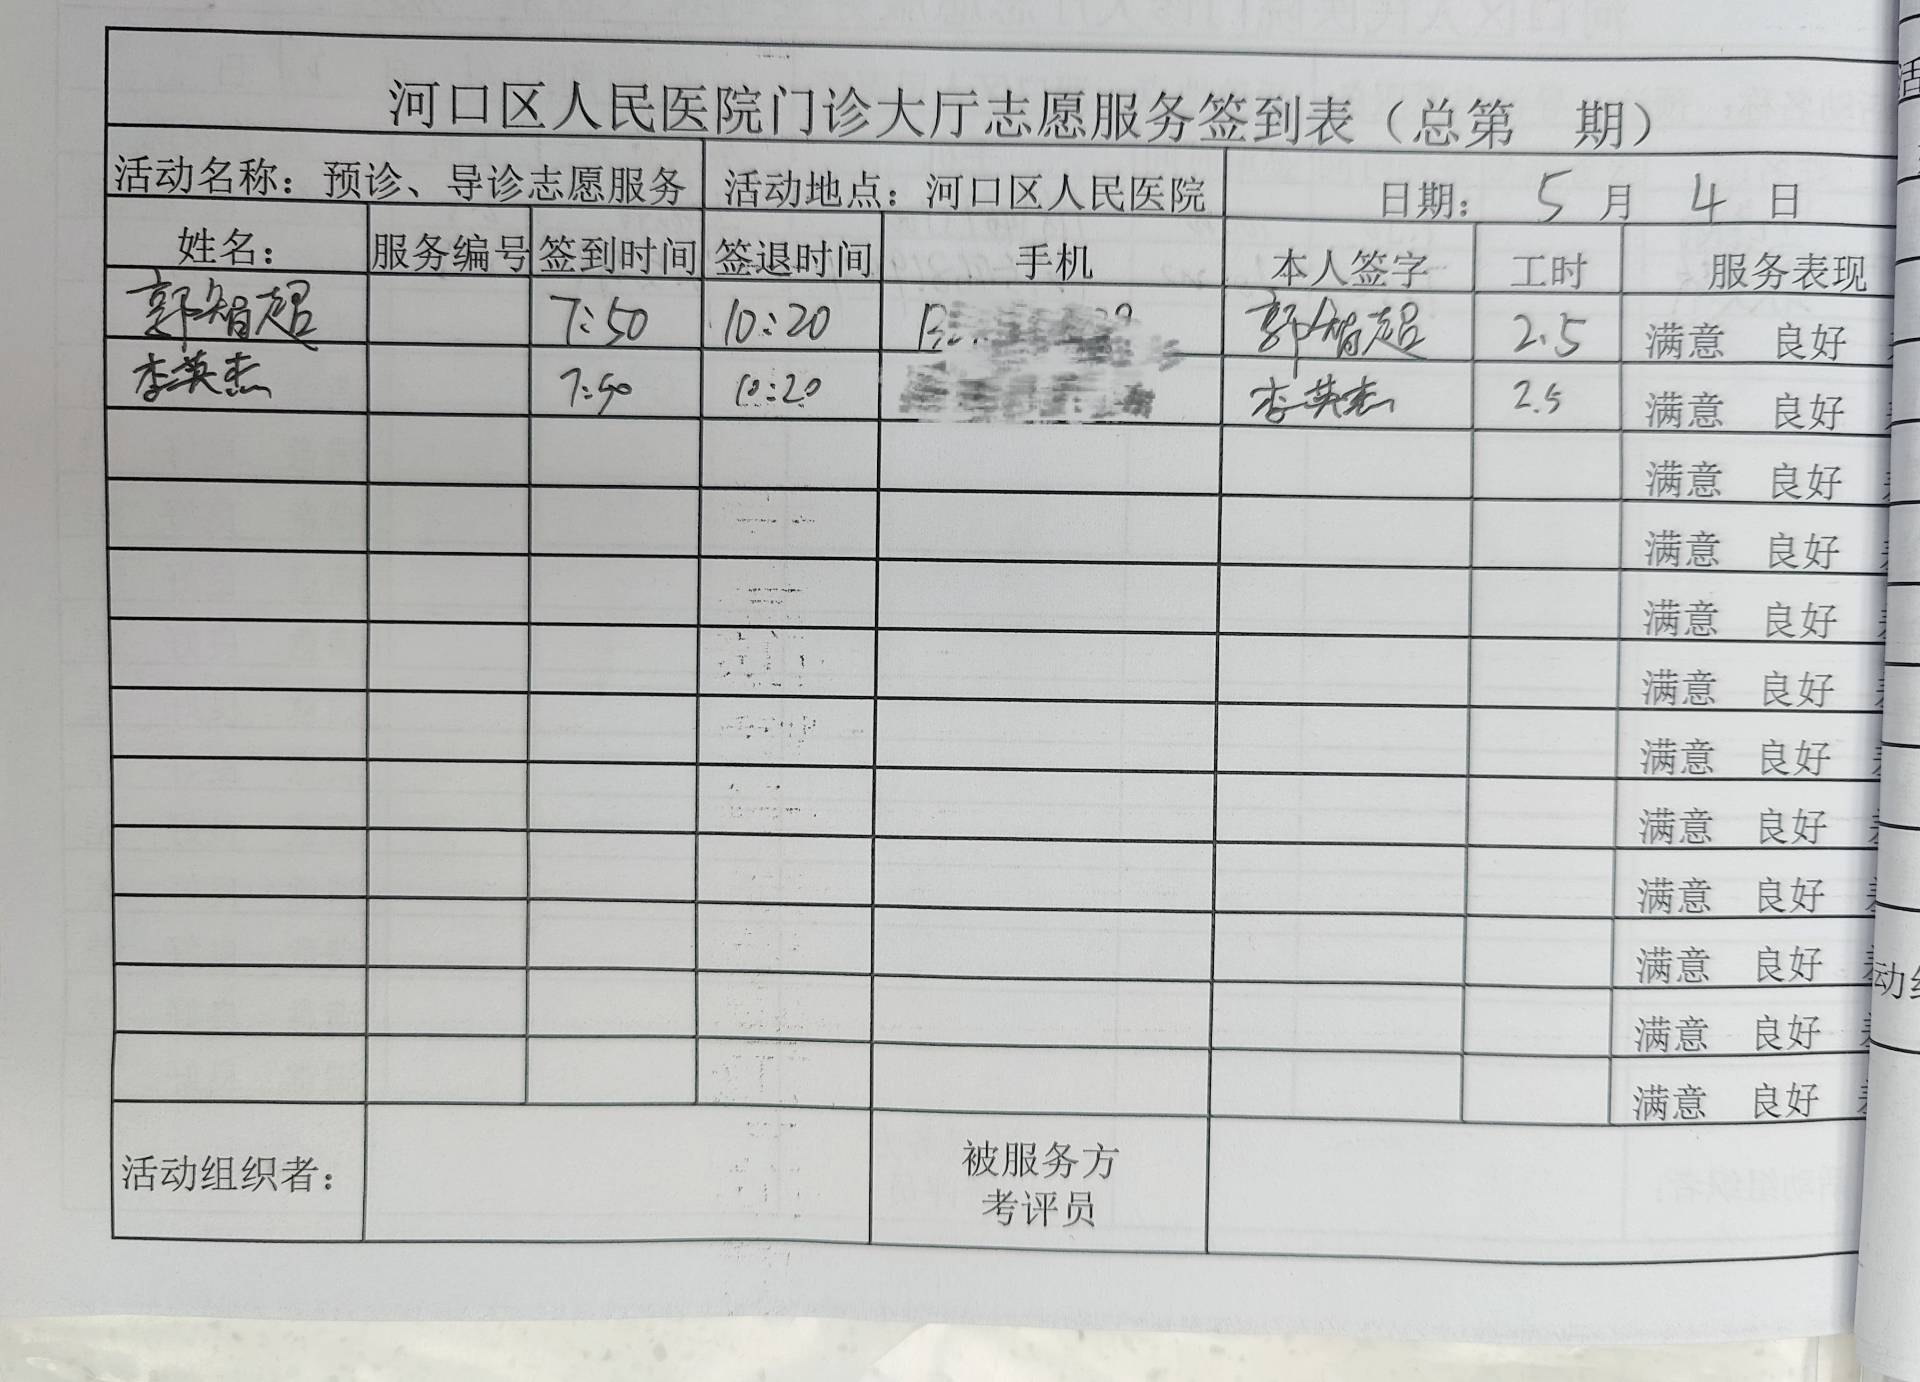 河口区人民医院门诊大厅志愿服务签到表（总第 期）
活动名称：预诊、导诊志愿服务 活动地点：河口区人民医院 日期： 5 月 4 日
姓名： 服务编号 签到时间 签退时间 手机 本人签字 工时 服务表现
郭智超 7:50 10:20 郭智超 2.5 满意 良好
李英杰 7:50 10:20 李英杰 2.5 满意 良好
满意 良好
满意 良好
满意 良好
满意 良好
满意 良好
满意 良好
满意 良好
满意 良好
满意 良好
满意 良好
活动组织者： 被服务方
考评员